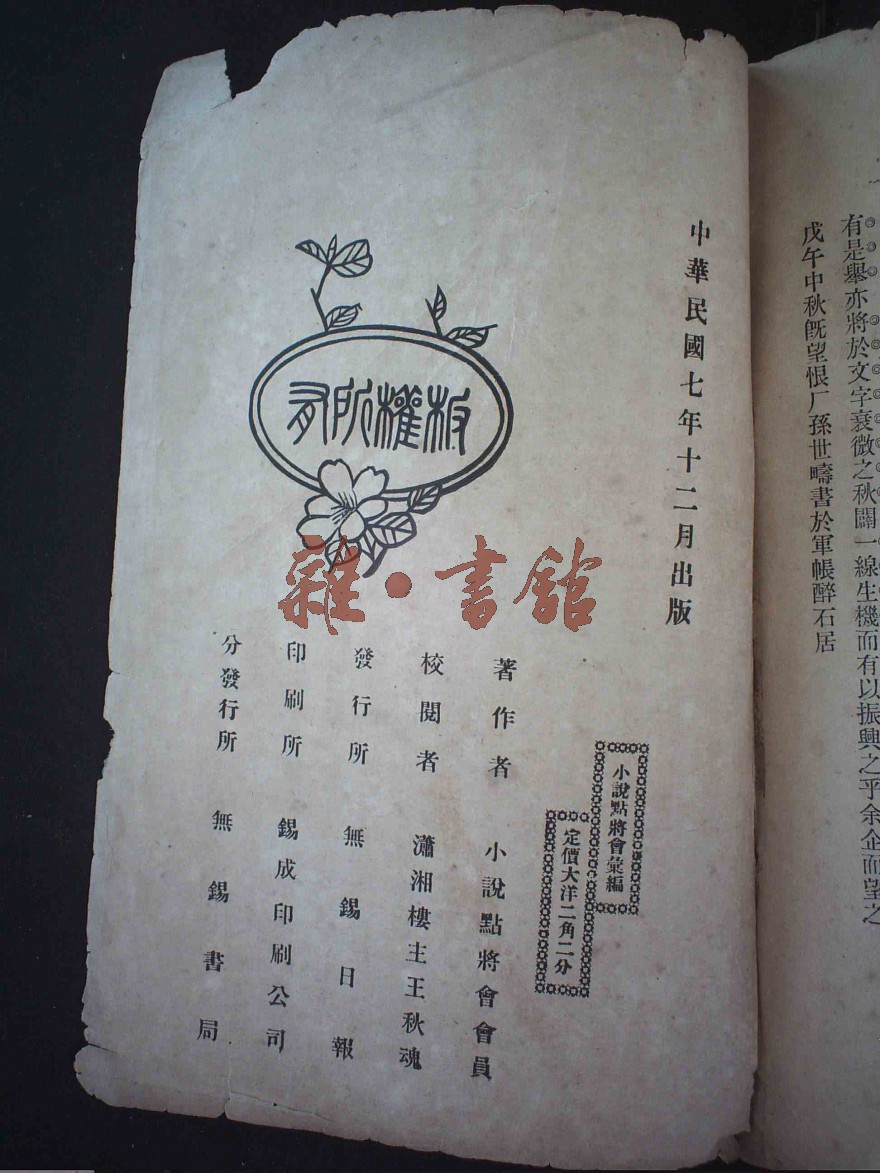 有是舉亦將於文字衰微之秋闢一線生機而有以振興之乎余企而望之
戊午中秋既望恨厂孫世疇書於軍帳醉石居
中華民國七年十二月出版
板權所有
雜·書館
小說點將會彙編
定價大洋二角二分
著作者 小說點將會會員
校閱者 瀟湘樓主王秋魂
發行所 無錫日報
印刷所 錫成印刷公司
分發行所 無錫書局